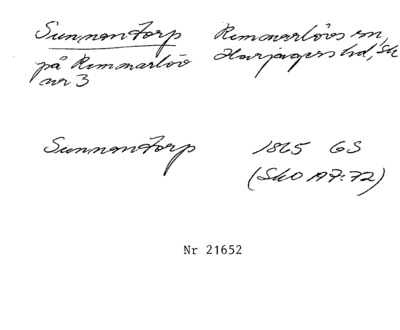 Sunnantorp Remmarlövs sn,
på Remmarlöv Harjagers hd, Sk
nr 3
Sunnantorp 1865 GS
(SkO A97:72)
Nr 21652